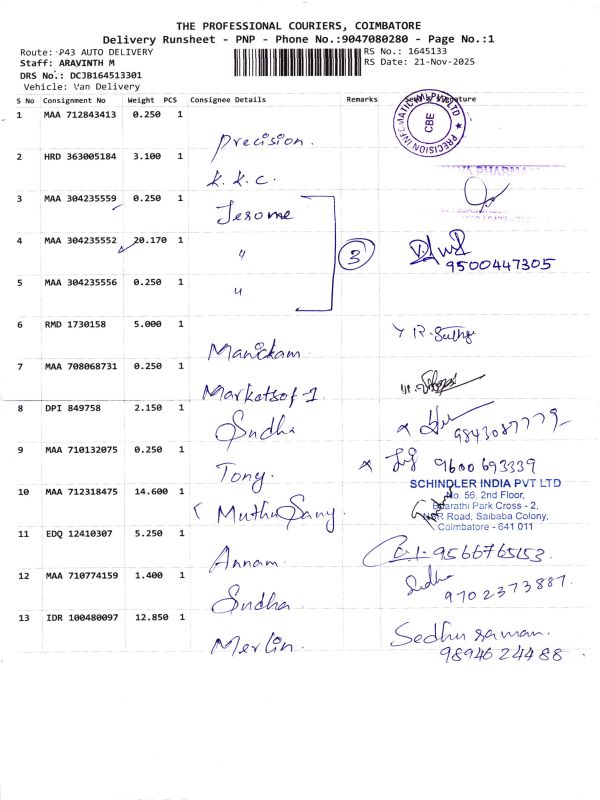 THE PROFESSIONAL COURIERS, COIMBATORE
Delivery Runsheet - PNP - Phone No.:9047080280 - Page No.:1
Route: P43 AUTO DELIVERY
RS No.: 1645133
Staff: ARAVINTH M
RS Date: 21-Nov-2025
DRS No.: DCJB164513301
Vehicle: Van Delivery
S No Consignment No Weight PCS Consignee Details Remarks
1 MAA 712843413 0.250 1
PRECISION INFOMATIC (M) PVT LTD
CBE
Precision.
2 HRD 363005184 3.100 1
K.K.C.
3 MAA 304235559 0.250 1
Jerome
4 MAA 304235552 20.170 1
"
3
9500447305
5 MAA 304235556 0.250 1
"
6 RMD 1730158 5.000 1
Manickam.
7 MAA 708068731 0.250 1
Marketsof-1
8 DPI 849758 2.150 1
Sudha
9843087779
9 MAA 710132075 0.250 1
Tony.
9600693339
10 MAA 712318475 14.600 1
Muthu Samy
SCHINDLER INDIA PVT LTD
No. 56, 2nd Floor,
Bharathi Park Cross - 2,
NSR Road, Saibaba Colony,
Coimbatore - 641 011
11 EDQ 12410307 5.250 1
Annam.
9566765153
12 MAA 710774159 1.400 1
Sudha
Sudha
9702373887.
13 IDR 100480097 12.850 1
Merlin.
Sedhu raman.
9894624488